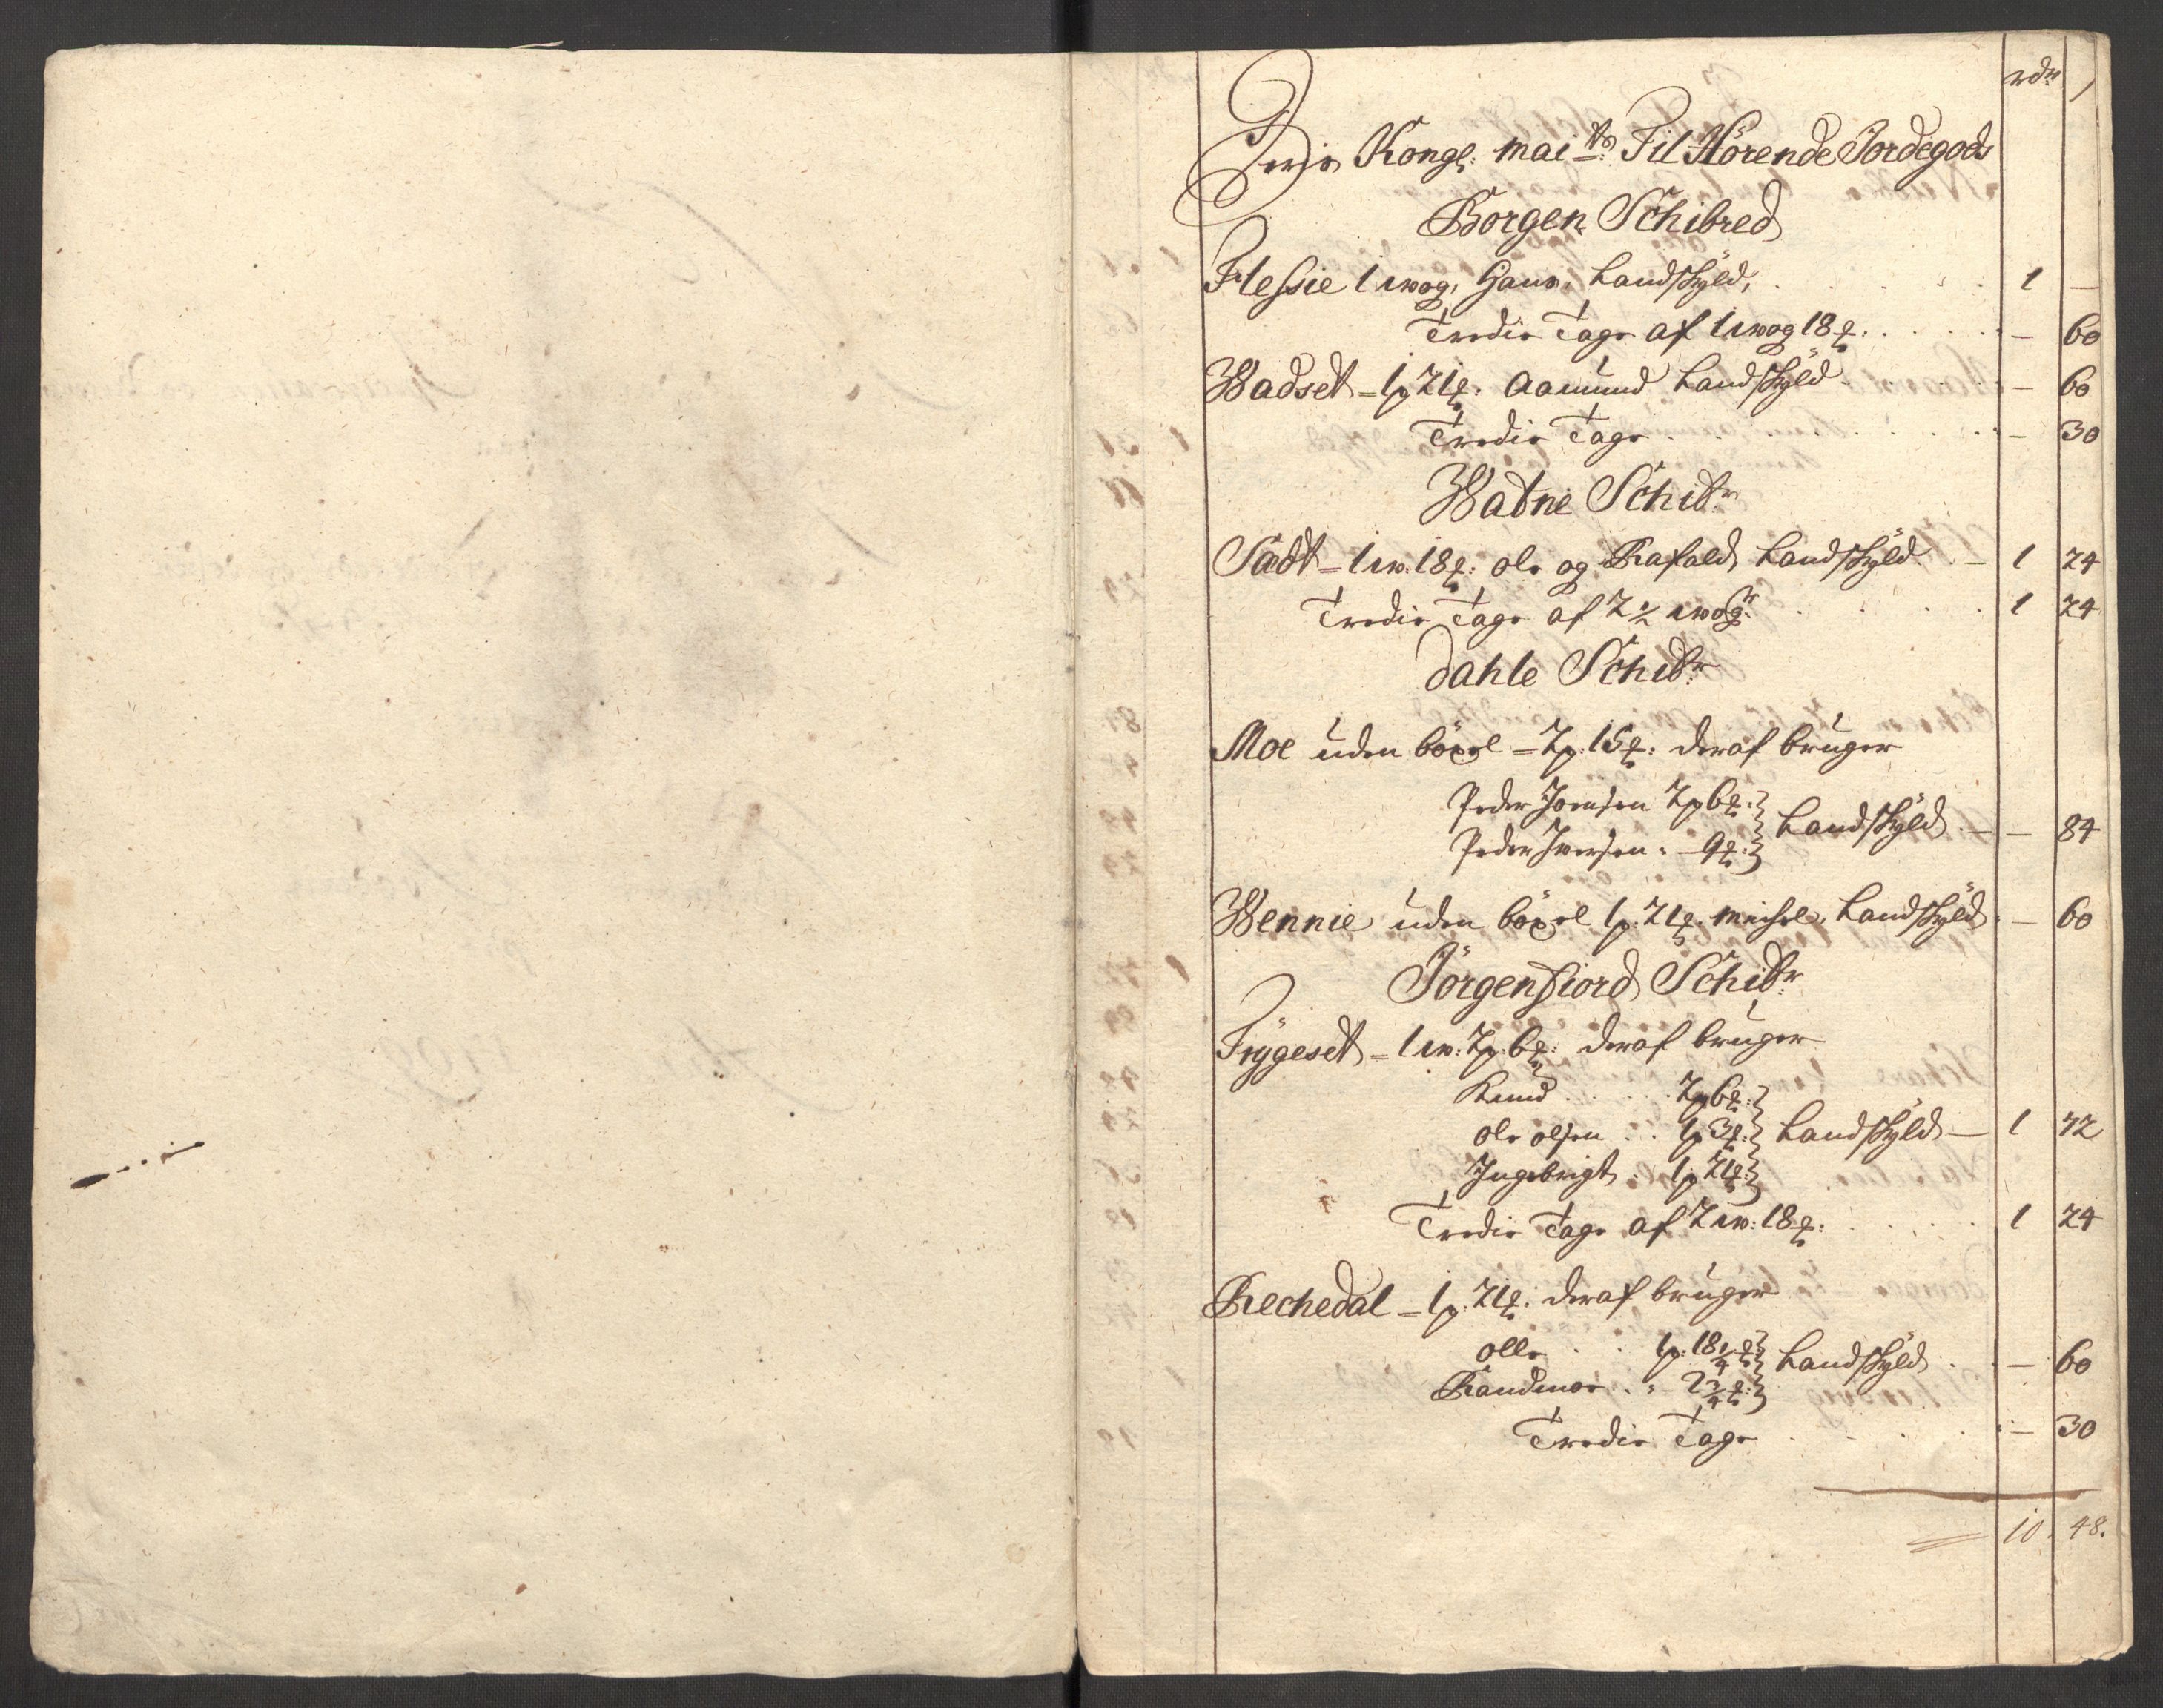 rdr /
Deris Kongl: mai:ts Til Hörende Jordegods
Borgen Schibred
Flessie 1 wog, Hans, Landskyld, 1 —
Tredie Tage af 1 wog 18 ℔: — 60
Wadset – 1 p 21 ℔: Aamund Landskyld — 60
Tredie Tage — 30
Watne Schibr:
Sadt – 1 w: 18 ℔: ole og Rafald, Landskyld — 1 24
Tredie Tage af 2 ½ wogr: 1 24
Dahle Schibr:
Moe uden böxel – 2 p: 15 ℔: deraf bruger
Peder Joensen 2 p 6 ℔:
Peder Iversen: – 9 ℔: Landskyld — — 84
Wennie uden böxel 1 p: 21 ℔: michel, Landskyld: — 60
Jörgenfiord Schibr:
Frygeset – 1 w: 2 p: 6 ℔: deraf bruger
Knud 2 p 6 ℔:
ole olsen 1 p 3 ℔: Landskyld — 1 72
Ingebrigt: 1 p 21 ℔:
Tredie Tage af 2 w: 18 ℔: 1 24
Rechedal – 1 p: 21 ℔: deraf bruger
olle 1 p: 18 ¼ ℔: Landskyld — 60
Randmoe : 2 ¾ ℔:
Tredie Tage : — 30
10. 48.